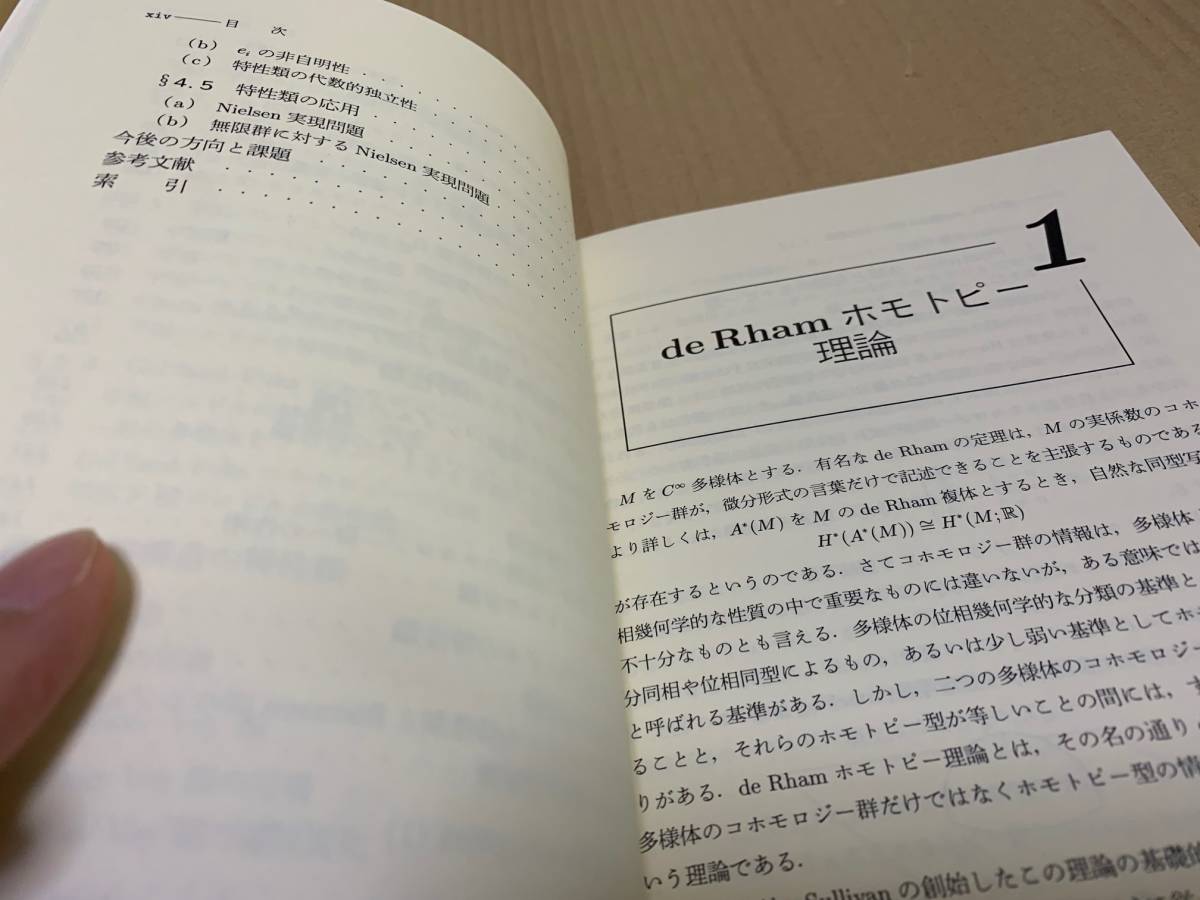 xiv——目　次
(b) e_i の非自明性 . . . . . .
(c) 特性類の代数的独立性 . . . . . .
§4.5 特性類の応用 . . . . . . . .
(a) Nielsen 実現問題 . . . . . . .
(b) 無限群に対する Nielsen 実現問題 . . . .
今後の方向と課題 . . . . . . . . .
参考文献 . . . . . . . . . . . .
索　引 . . . . . . . . . . . .
1
de Rham ホモトピー
理論
M を C∞ 多様体とする．有名な de Rham の定理は，M の実係数のコホ
モロジー群が，微分形式の言葉だけで記述できることを主張するものである
より詳しくは，A*(M) を M の de Rham 複体とするとき，自然な同型写
H*(A*(M)) ≅ H*(M;ℝ)
が存在するというのである．さてコホモロジー群の情報は，多様体
相幾何学的な性質の中で重要なものには違いないが，ある意味では
不十分なものとも言える．多様体の位相幾何学的な分類の基準と
分同相や位相同型によるもの，あるいは少し弱い基準としてホモ
と呼ばれる基準がある．しかし，二つの多様体のコホモロジー
ることと，それらのホモトピー型が等しいことの間には，
りがある．de Rham ホモトピー理論とは，その名の通り
多様体のコホモロジー群だけではなくホモトピー型の情
いう理論である．
Sullivan の創始したこの理論の基礎的